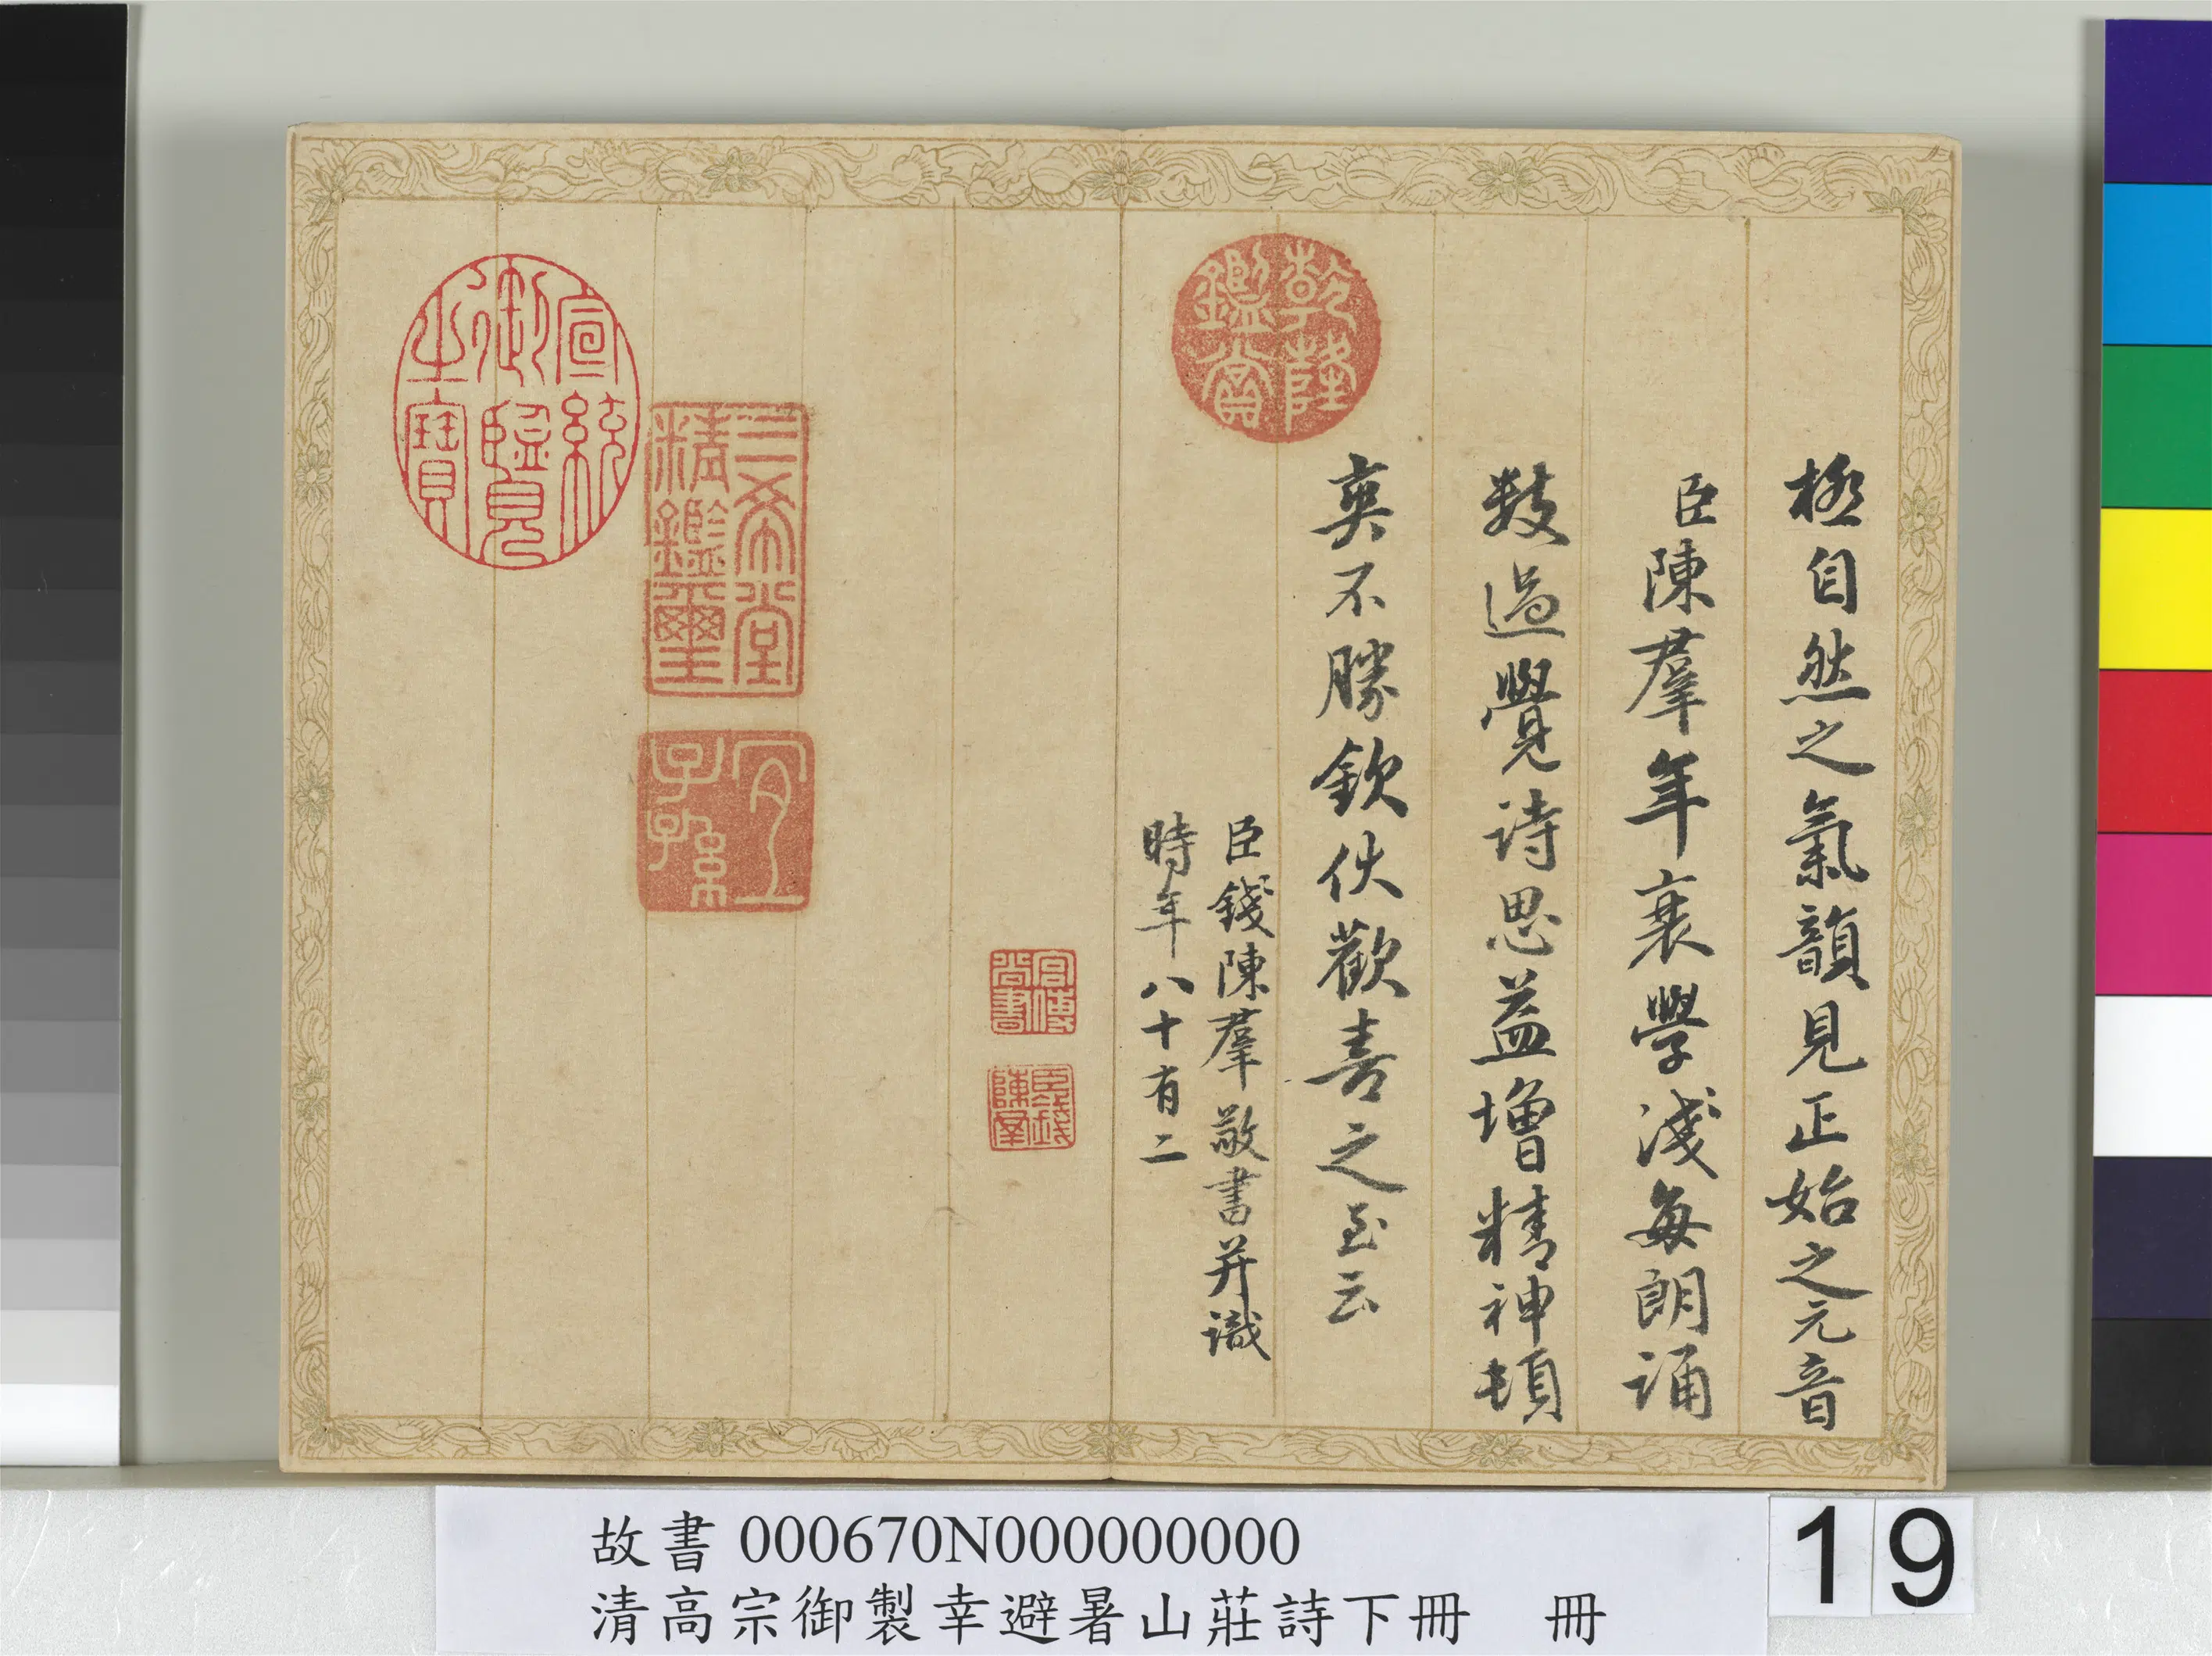 極自然之氣韻見正始之元音
臣陳羣年衰學淺每朗誦
數過覺詩思益增精神頓
爽不勝欽伏歡喜之至云
臣錢陳羣敬書并識
時年八十有二
乾隆鑑賞
宮傅尚書
臣錢陳羣
三希堂精鑑璽
宜子孫
宣統御覽之寶
故書 000670N000000000
清高宗御製幸避暑山莊詩下冊 冊
19